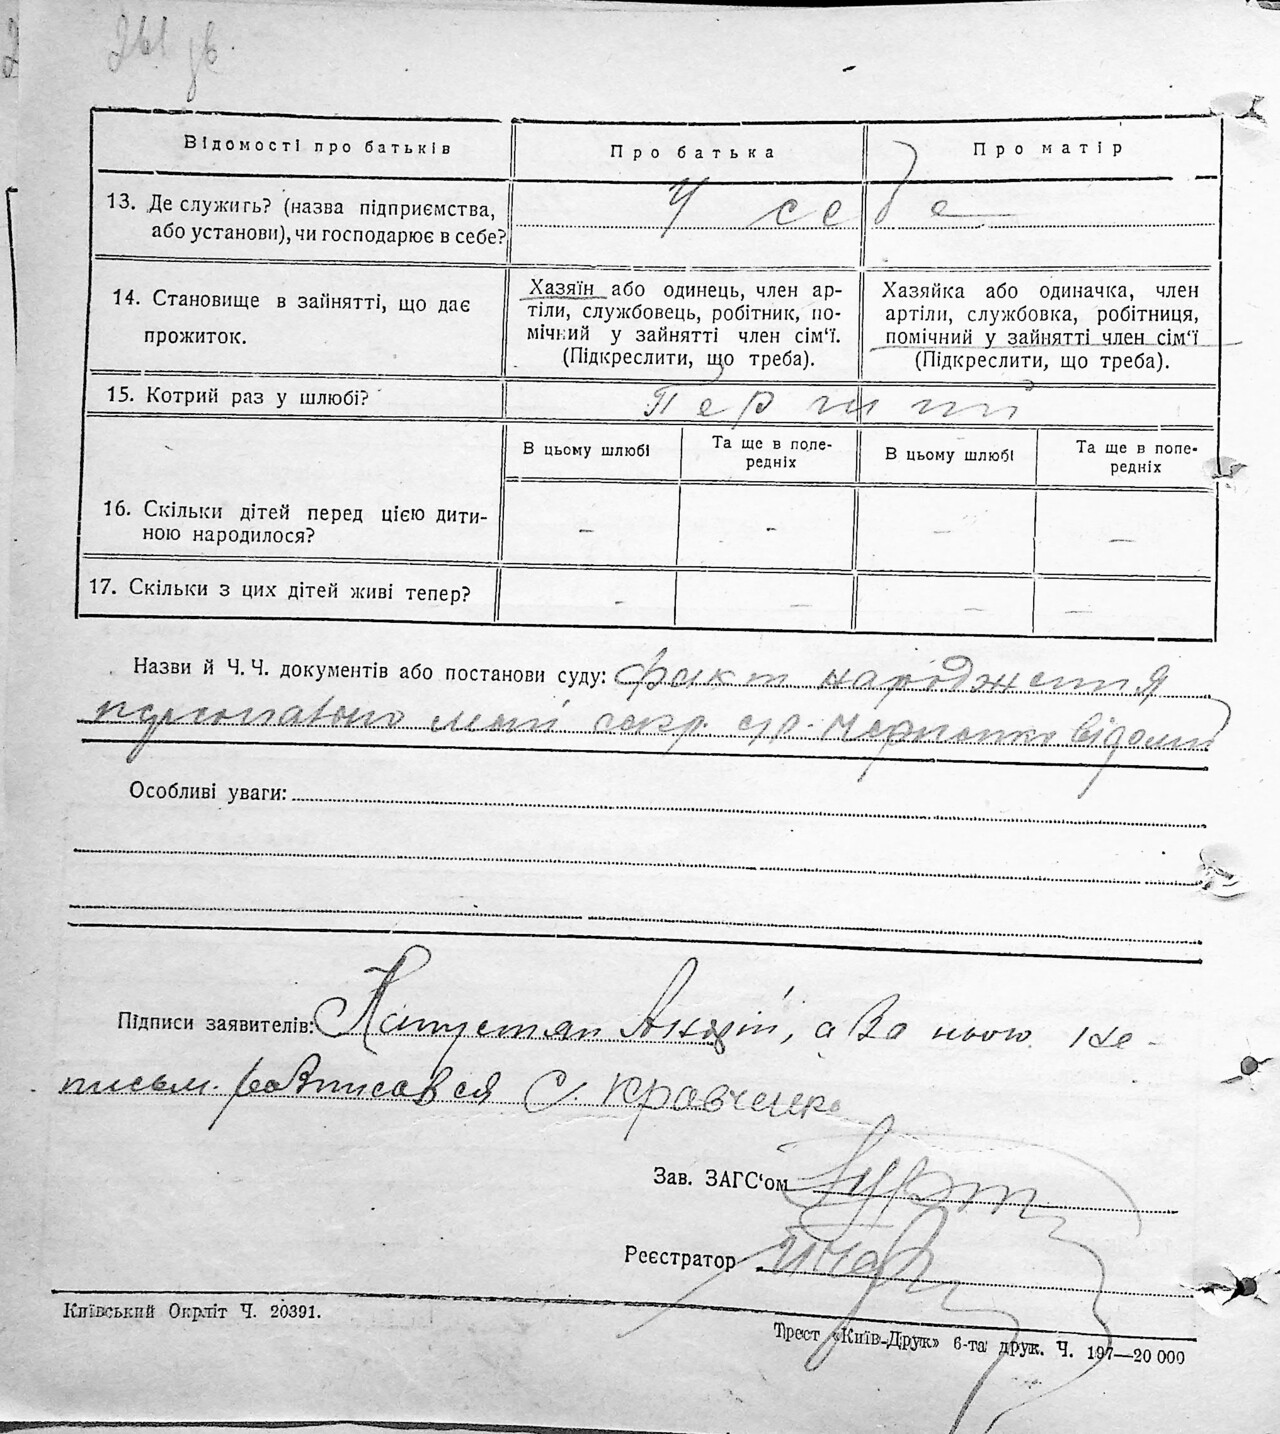 261 зв.
Відомості про батьків
Про батька
Про матір
13. Де служить? (назва підприємства,
або установи), чи господарює в себе?
У себе
14. Становище в зайнятті, що дає
прожиток.
Хазяїн або одинець, член ар-
тіли, службовець, робітник, по-
мічний у зайнятті член сім‘ї.
(Підкреслити, що треба).
Хазяйка або одиначка, член
артіли, службовка, робітниця,
помічний у зайнятті член сім‘ї
(Підкреслити, що треба).
15. Котрий раз у шлюбі?
Перший
В цьому шлюбі
Та ще в попе-
редніх
В цьому шлюбі
Та ще в попе-
редніх
16. Скільки дітей перед цією дити-
ною народилося?
– – – –
17. Скільки з цих дітей живі тепер?
– – – –
Назви й Ч.Ч. документів або постанови суду: факт народження
персонально мені секр. відомий
Особливі уваги:
Підписи заявителів: Капустян Андрій, а за нього не-
письм. розписався С. Кравченко
Зав. ЗАГС‘ом
Реєстратор
Київський Окрліт Ч. 20391.
Трест «Київ-Друк» 6-та друк. Ч. 197—20 000